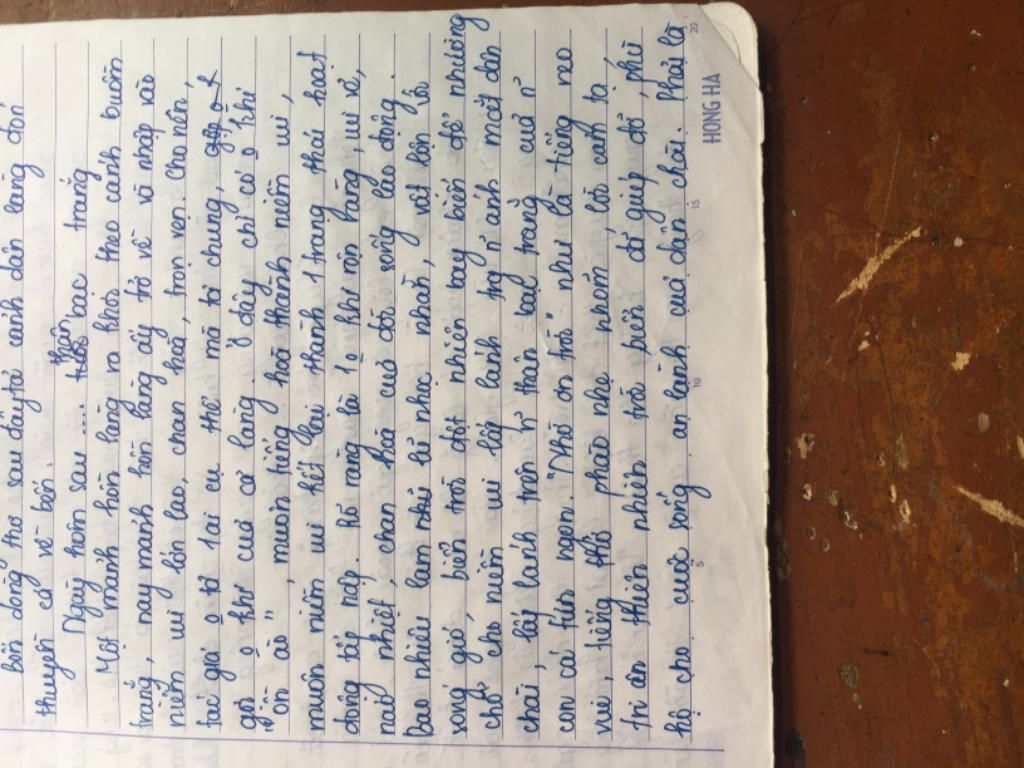 bốn dòng thơ sau đây tả cảnh dân làng đón
thuyền cá về bến.
Ngày hôm sau .... thân bạc trắng
Một mảnh hồn làng ra khơi theo cánh buồm
trắng, nay mảnh hồn làng ấy trở về và nhập vào
niềm vui lớn lao, chan hoà, trọn vẹn. Cho nên,
tác giả o tả 1 ai cụ thể mà tả chung,
gộ o thở của cả làng. Ở đây chỉ có o khí
"ồn ào", muôn tiếng hoà thành niềm vui,
muôn niềm vui kết lại thành 1 trạng thái hoạt
động tấp nập. Rõ ràng là 1 o khí rộn ràng, vui vẻ,
náo nhiệt, chan hoà của đời sống lao động.
Bao nhiêu lam lũ nhọc nhằn, vật lộn vs
sóng gió, biển trời đột nhiên bay biến để nhường
chỗ cho niềm vui lấp lánh trg n' ánh mắt dân
chài, lấp lánh trên n' thân bạc trắng của n'
con cá tươi ngon. "Nhờ ơn trời" như là tiếng reo
vui, tiếng thở phào nhẹ nhõm, lời cảm tạ,
tri ân thiên nhiên trời biển đã giúp đỡ, phù
hộ cho cuộc sống an lành của dân chài. Phải là
HONG HA
5 10 15 20